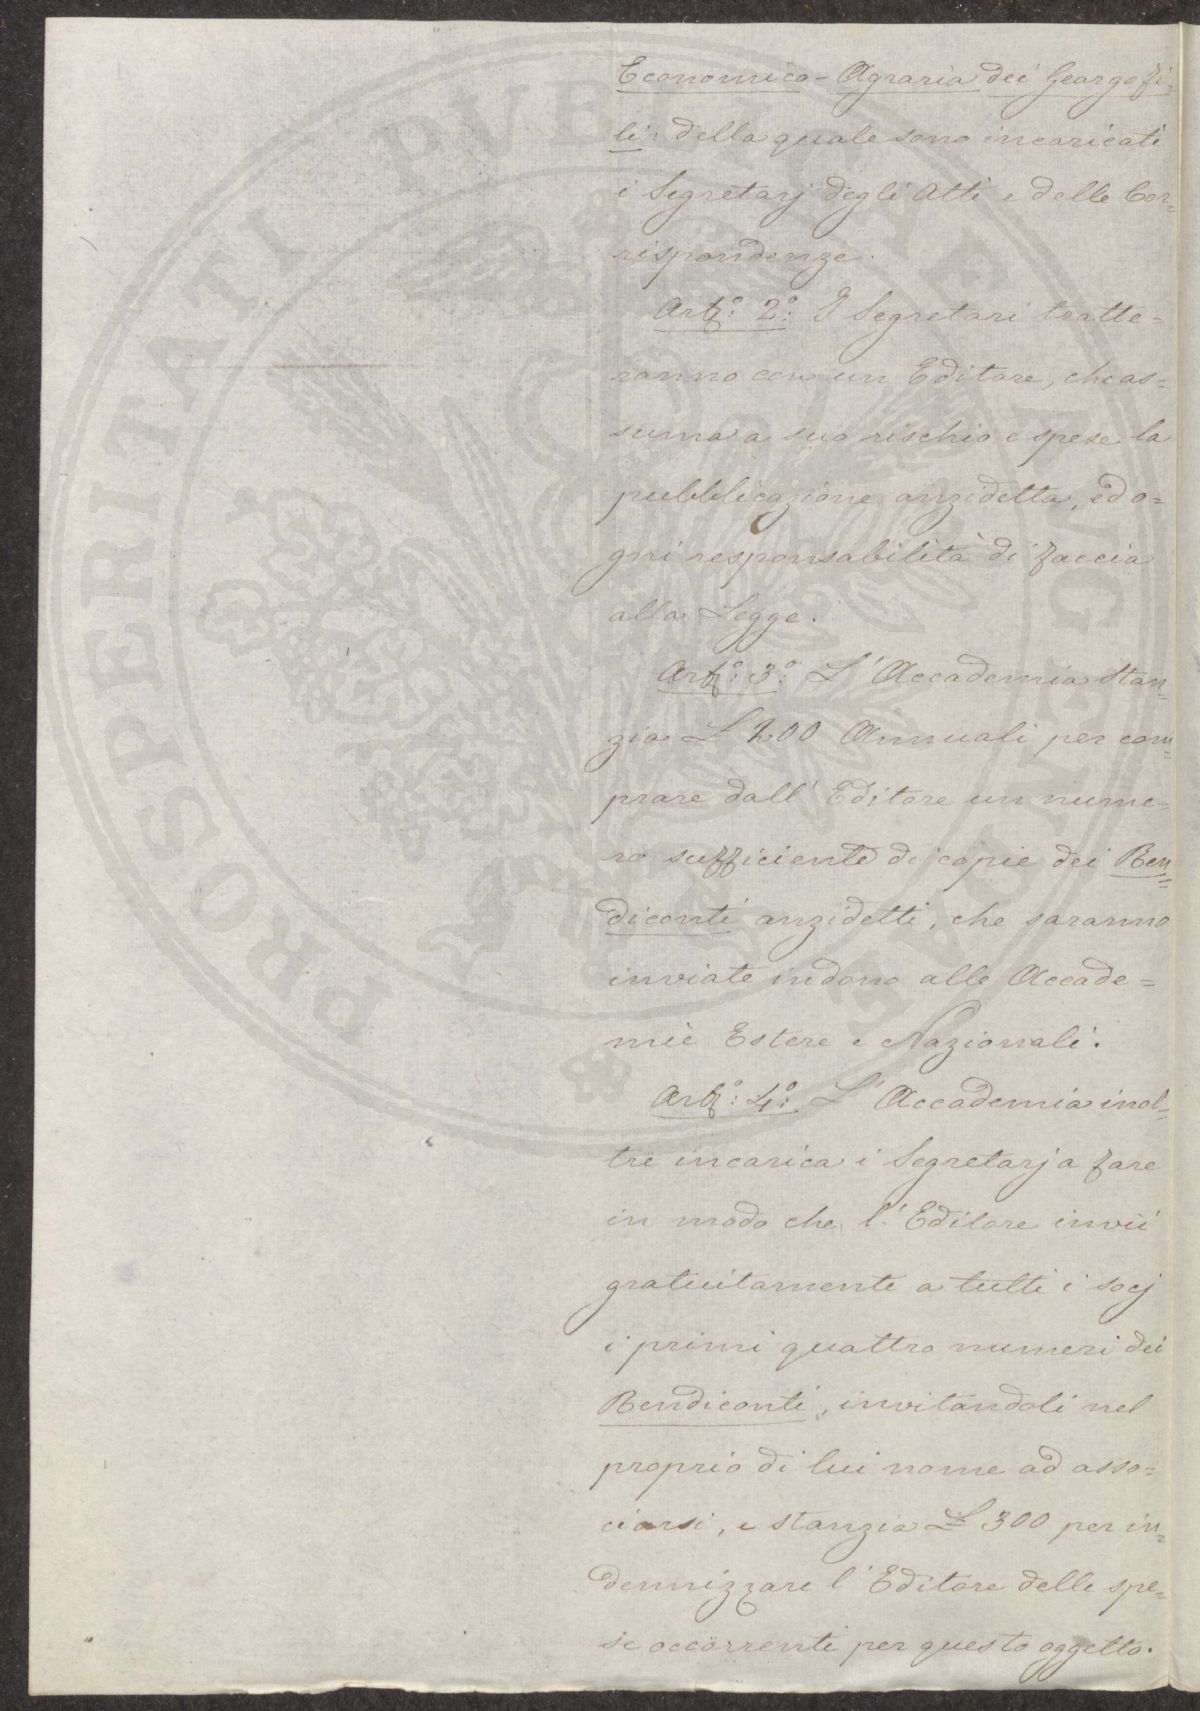 Economico-Agraria dei Georgofi-
li: della quale sono incaricati
i Segretarj degli Atti e delle Cor=
rispondenze.
Art.º 2.º I Segretari tratte=
ranno con un Editore, che as=
suma a suo rischio e spese la
pubblicazione anzidetta, ed o=
gni responsabilità di faccia
alla Legge.
Art.º 3.º L'Accademia stan=
zia L 200 Annuali per com=
prare dall'Editore un nume=
ro sufficiente di copie dei Ren=
diconti anzidetti, che saranno
inviate in dono alle Accade=
mie Estere e Nazionali.
Art.º 4.º L'Accademia inol=
tre incarica i Segretarj a fare
in modo che l'Editore invii
gratuitamente a tutti i socj
i primi quattro numeri dei
Rendiconti, invitandoli nel
proprio di lui nome ad asso=
ciarsi, e stanzia £ 300 per in=
dennizzare l'Editore delle spe=
se occorrenti per questo oggetto.
PROSPERITATI PUBLICAE AUGENDAE